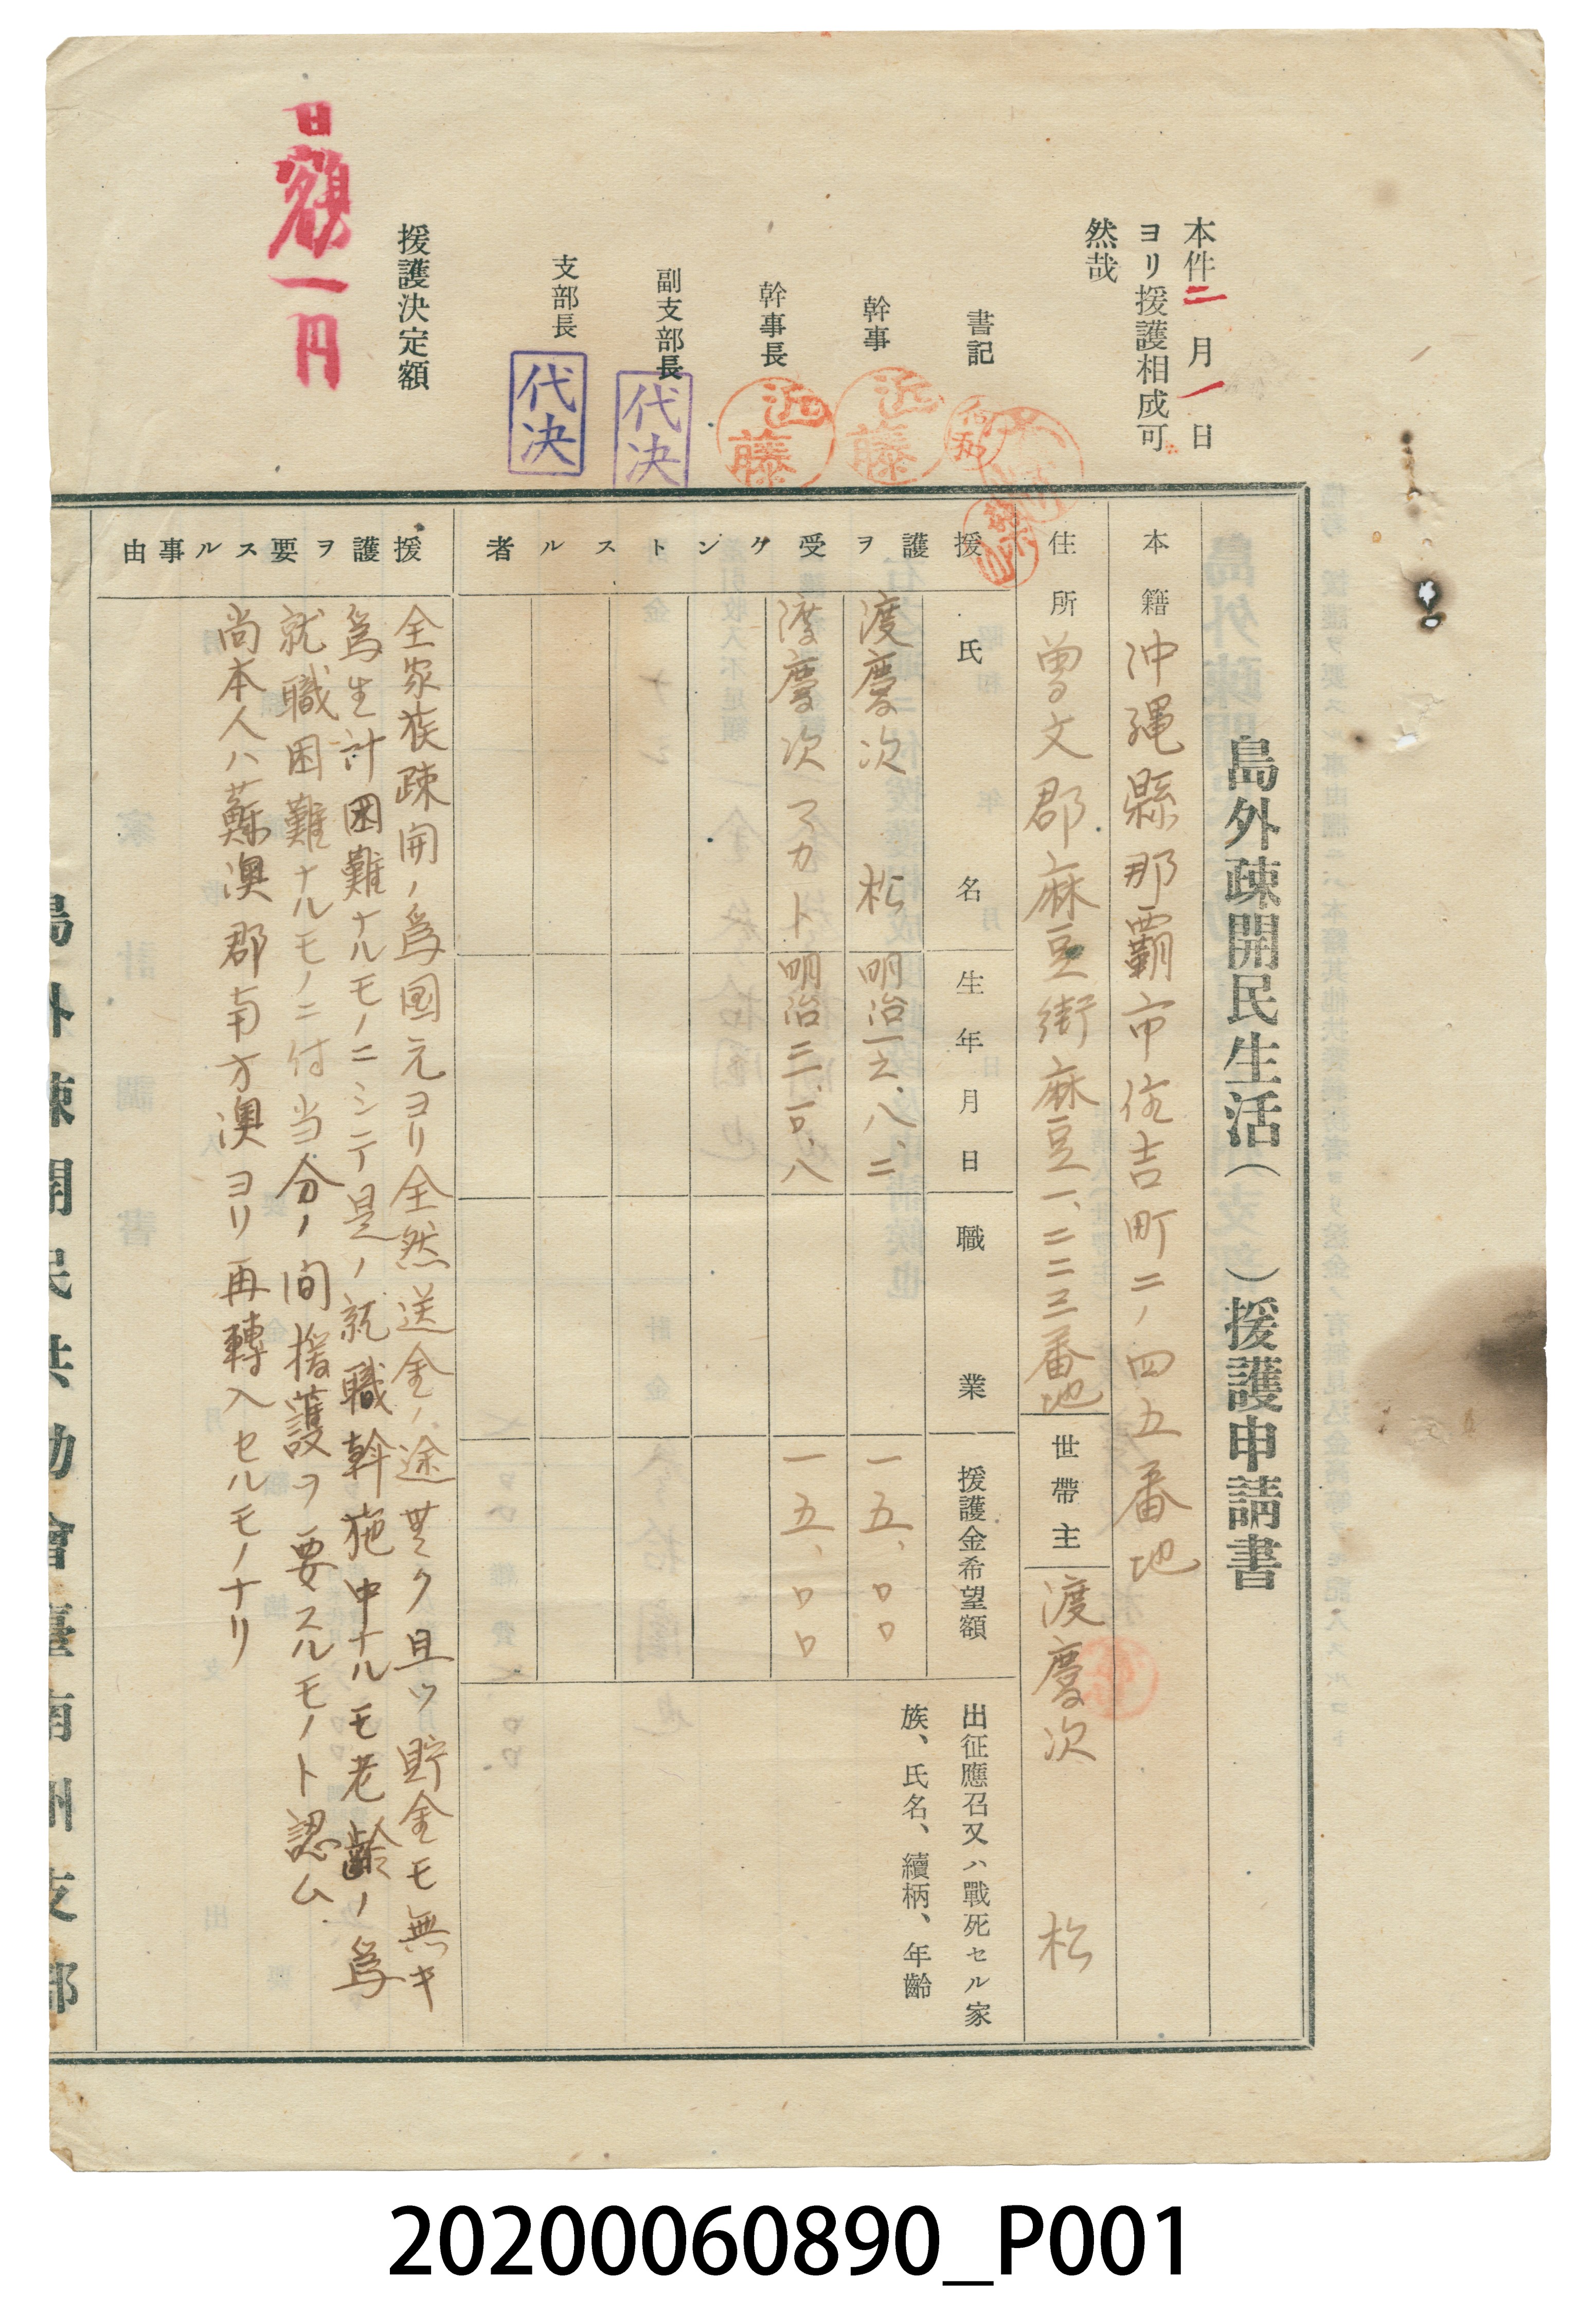 島外疎開民生活（　　）援護申請書
本籍 沖縄縣那覇市住吉町二ノ四五番地
住所 曽文郡麻豆街麻豆一、二二三番地 世帶主 渡慶次 松
援護ヲ受ケントスル者
氏名 生年月日 職業 援護金希望額 出征應召又ハ戰死セル家
族、氏名、續柄、年齡
渡慶次 松 明治一六、八、二 一五、〇〇
渡慶次マカト 明治二一、一〇、八 一五、〇〇
援護ヲ要スル事由
全家族疎開ノ爲国元ヨリ全然送金ノ途無ク且ツ貯金モ無キ
爲生計困難ナルモノニシテ是ノ就職斡施中ナルモ老齢ノ爲
就職困難ナルモノニ付当分ノ間援護ヲ要スルモノト認ム
尚本人ハ蘇澳郡南方澳ヨリ再轉入セルモノナリ
島外疎開民共助會臺南州支部
本件二月一日
ヨリ援護相成可
然哉
書記
幹事 近藤
幹事長 近藤
副支部長 代決
支部長 代決
援護決定額
日額一円
20200060890_P001